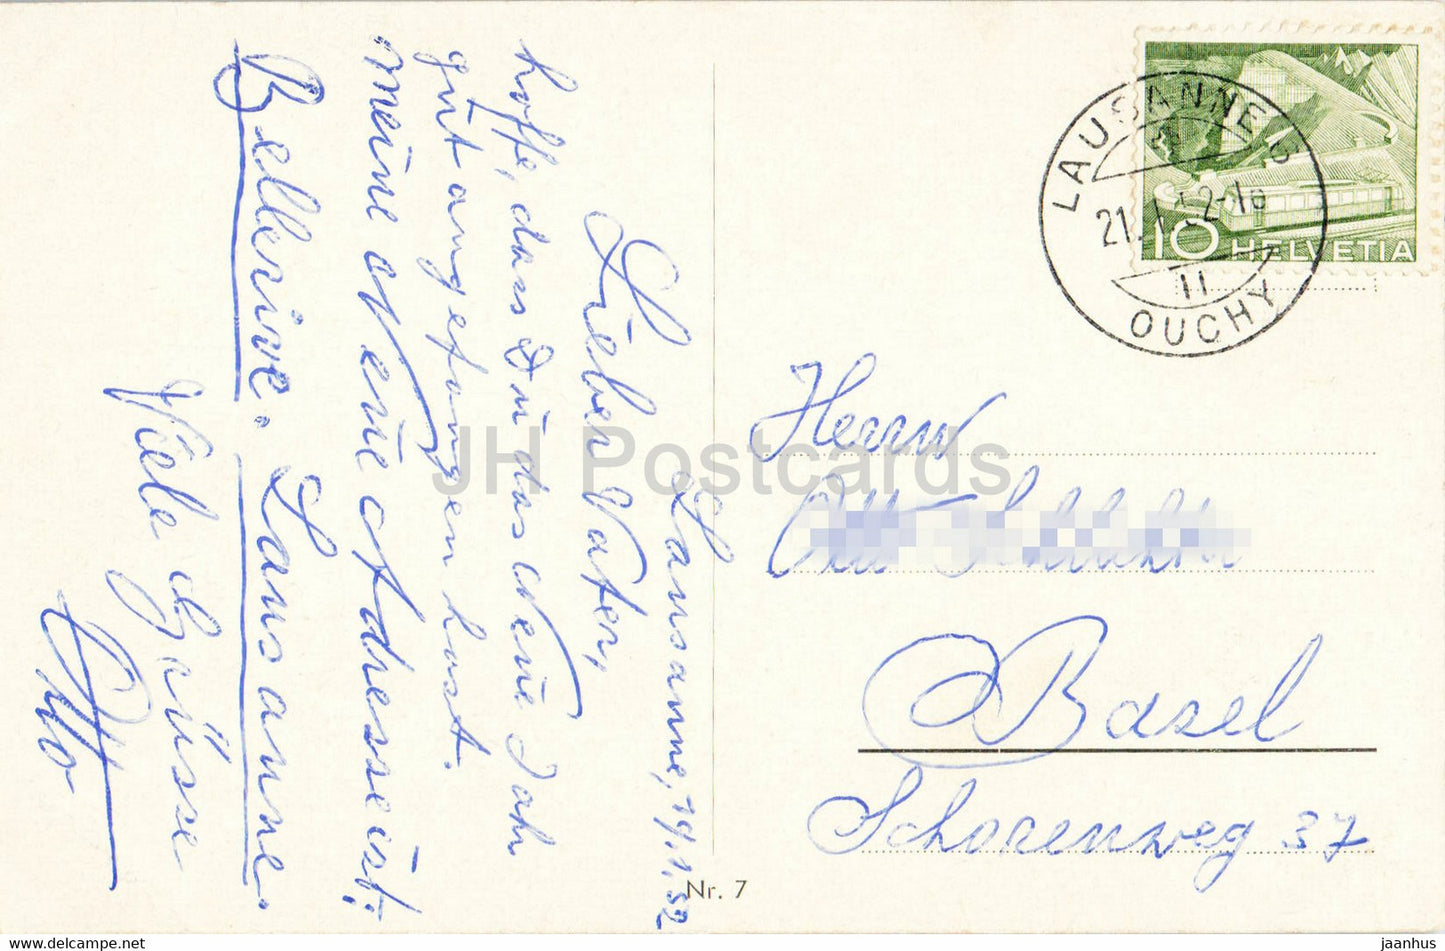 Lausanne, 19.1.52
Lieber Vater,
hoffe, dass Du das Neue Jahr
gut angefangen hast.
meine Neue Adresse ist:
Bellerive. Lausanne.
Viele Grüsse
Otto
Nr. 7
LAUSANNE 13
21.1.52-16
11
OUCHY
10 HELVETIA
Herrn
Basel
Schorenweg 37
JH Postcards
www.delcampe.net
jaanhus